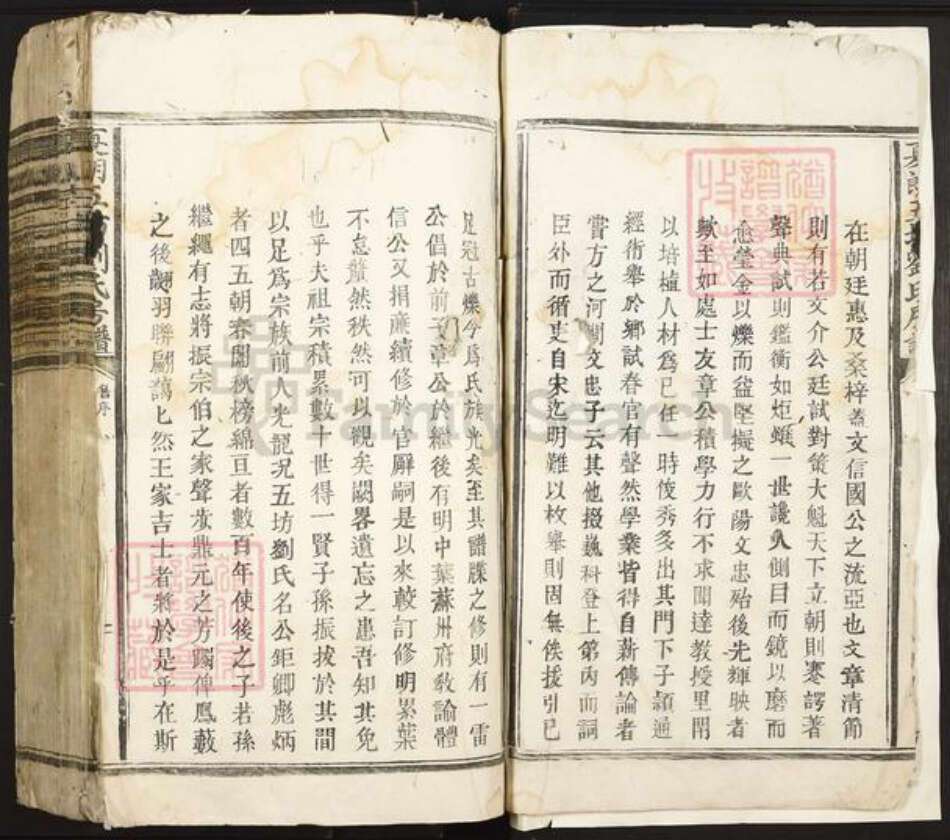 在朝廷惠及桑梓蓋文信國公之流亞也文章清節
則有若文介公廷試對策大魁天下立朝則蹇諤著
聲典試則鑑衡如炬雖一世讒人側目而鏡以磨而
愈瑩金以爍而益堅擬之歐陽文忠殆後先輝映者
歟至如處士友章公積學力行不求聞達教授里閈
以培植人材為己任一時俊秀多出其門下子穎通
經術舉於鄉試春官有聲然學業皆得自薪傳論者
嘗方之河間文忠子云其他掇巍科登上第內而詞
臣外而循吏自宋迄明難以枚舉則固無俟援引已
足冠古爍今為氏族光矣至其譜牒之修則有一雷
公倡於前文章公於繼後有明中葉蘇州府教諭體
信公又捐廉續修於官廨嗣是以來較訂修明累葉
不怠麓然秩然可以觀矣闕畧遺忘之患吾知其免
也乎夫祖宗積累數十世得一賢子孫振拔於其間
以足為宗族前人光寵況五坊劉氏名公鉅卿彪炳
者四五朝春闈秋榜綿亘者數百年使後之子若孫
繼繩有志將振宗伯之家聲步鼎元之芳躅俾鳳藪
之後翽羽聯翩藹藹然王家吉士者將於是乎在斯
劉氏
譜
舊序
FamilySearch